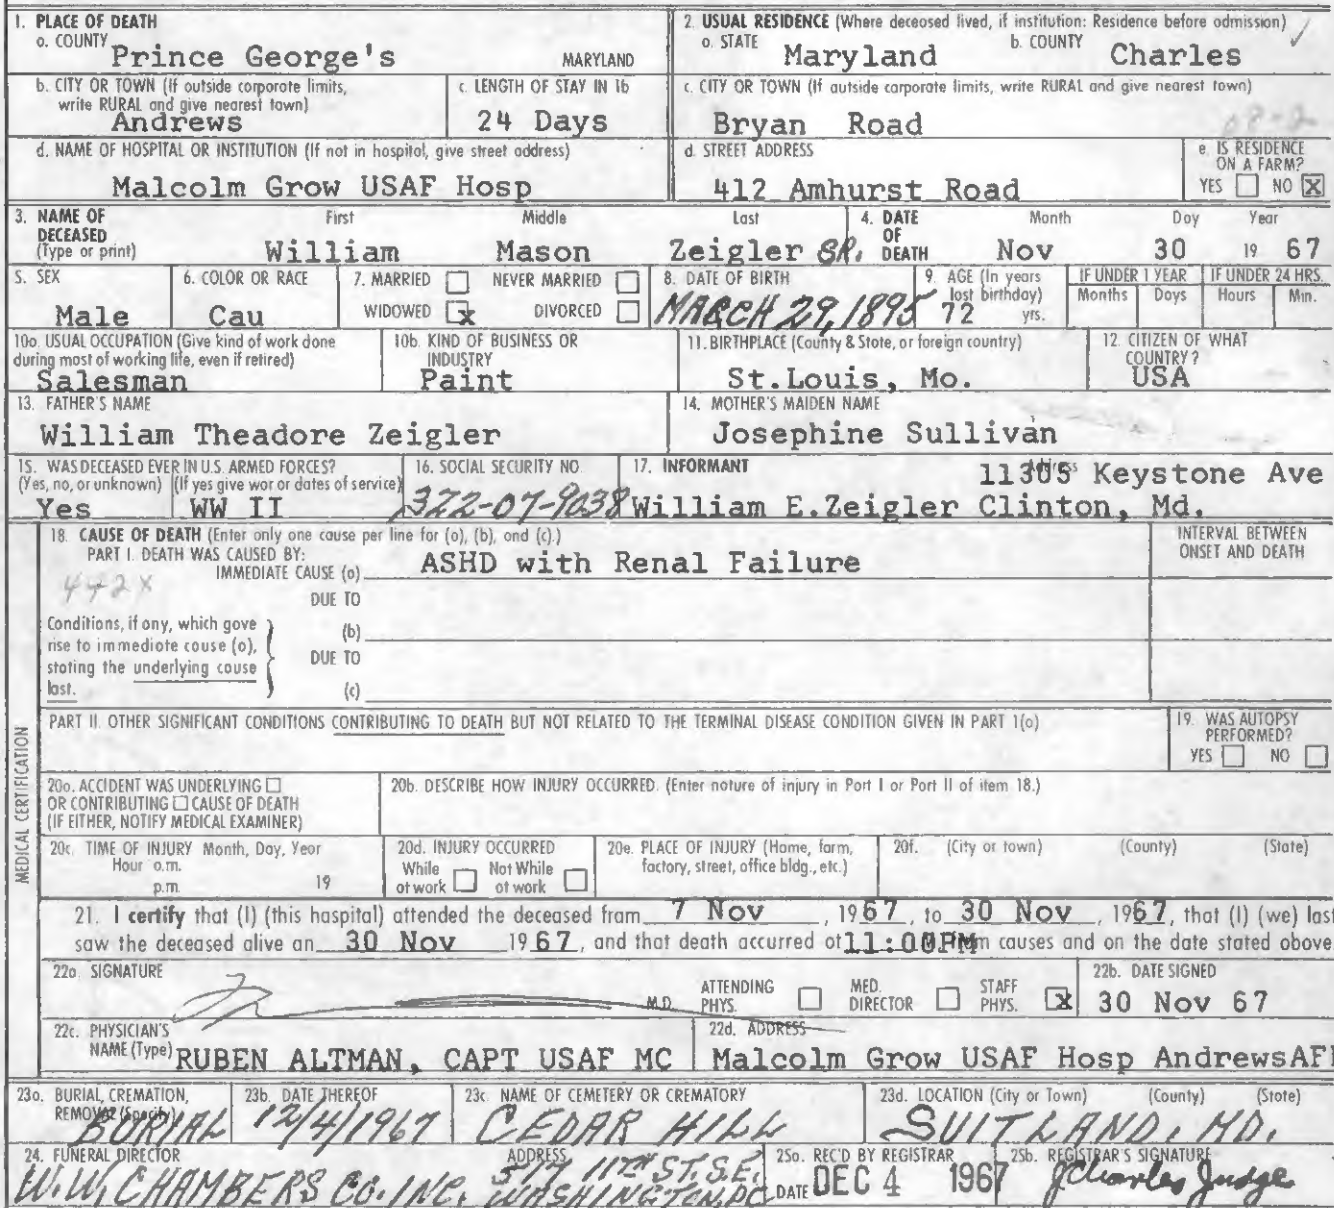 1. PLACE OF DEATH
a. COUNTY Prince George's MARYLAND
2. USUAL RESIDENCE (Where deceased lived, if institution: Residence before admission)
a. STATE Maryland b. COUNTY Charles
b. CITY OR TOWN (If outside corporate limits, write RURAL and give nearest town)
Andrews
c. LENGTH OF STAY IN 1b
24 Days
c. CITY OR TOWN (If outside corporate limits, write RURAL and give nearest town)
Bryan Road
d. NAME OF HOSPITAL OR INSTITUTION (If not in hospital, give street address)
Malcolm Grow USAF Hosp
d. STREET ADDRESS
412 Amhurst Road
e. IS RESIDENCE ON A FARM?
YES NO X
3. NAME OF DECEASED (Type or print)
First Middle Last
William Mason Zeigler SR.
4. DATE OF DEATH
Month Day Year
Nov 30 19 67
5. SEX
Male
6. COLOR OR RACE
Cau
7. MARRIED NEVER MARRIED
WIDOWED x DIVORCED
8. DATE OF BIRTH
MARCH 29, 1895
9. AGE (In years last birthday)
72 yrs.
IF UNDER 1 YEAR
Months Days
IF UNDER 24 HRS.
Hours Min.
10a. USUAL OCCUPATION (Give kind of work done during most of working life, even if retired)
Salesman
10b. KIND OF BUSINESS OR INDUSTRY
Paint
11. BIRTHPLACE (County & State, or foreign country)
St.Louis, Mo.
12. CITIZEN OF WHAT COUNTRY?
USA
13. FATHER'S NAME
William Theadore Zeigler
14. MOTHER'S MAIDEN NAME
Josephine Sullivan
15. WAS DECEASED EVER IN U.S. ARMED FORCES?
(Yes, no, or unknown) (If yes give war or dates of service)
Yes WW II
16. SOCIAL SECURITY NO.
322-07-9038
17. INFORMANT Address
11305 Keystone Ave
William E.Zeigler Clinton, Md.
18. CAUSE OF DEATH (Enter only one cause per line for (a), (b), and (c).)
PART I. DEATH WAS CAUSED BY:
IMMEDIATE CAUSE (a) ASHD with Renal Failure
INTERVAL BETWEEN ONSET AND DEATH
442X
DUE TO
Conditions, if any, which gave rise to immediate cause (a), stating the underlying cause last.
(b)
DUE TO
(c)
PART II. OTHER SIGNIFICANT CONDITIONS CONTRIBUTING TO DEATH BUT NOT RELATED TO THE TERMINAL DISEASE CONDITION GIVEN IN PART 1(a)
19. WAS AUTOPSY PERFORMED?
YES NO
MEDICAL CERTIFICATION
20a. ACCIDENT WAS UNDERLYING
OR CONTRIBUTING CAUSE OF DEATH
(IF EITHER, NOTIFY MEDICAL EXAMINER)
20b. DESCRIBE HOW INJURY OCCURRED. (Enter nature of injury in Part I or Part II of item 18.)
20c. TIME OF INJURY Month, Day, Year
Hour a.m.
p.m. 19
20d. INJURY OCCURRED
While at work Not While at work
20e. PLACE OF INJURY (Home, farm, factory, street, office bldg., etc.)
20f. (City or town) (County) (State)
21. I certify that (I) (this hospital) attended the deceased from 7 Nov, 1967, to 30 Nov, 1967, that (I) (we) last
saw the deceased alive on 30 Nov 1967, and that death occurred at 11:00PM causes and on the date stated above
22a. SIGNATURE
M.D.
ATTENDING PHYS. MED. DIRECTOR STAFF PHYS. x
22b. DATE SIGNED
30 Nov 67
22c. PHYSICIAN'S NAME (Type) RUBEN ALTMAN, CAPT USAF MC
22d. ADDRESS
Malcolm Grow USAF Hosp AndrewsAF
23a. BURIAL, CREMATION, REMOVAL (Specify)
BURIAL
23b. DATE THEREOF
12/4/1967
23c. NAME OF CEMETERY OR CREMATORY
CEDAR HILL
23d. LOCATION (City or Town) (County) (State)
SUITLAND, MD.
24. FUNERAL DIRECTOR ADDRESS
W.W. CHAMBERS CO. INC. 517 11TH ST. S.E. WASHINGTON, DC
25a. REC'D BY REGISTRAR
DATE DEC 4 1967
25b. REGISTRAR'S SIGNATURE
J Charles Judge